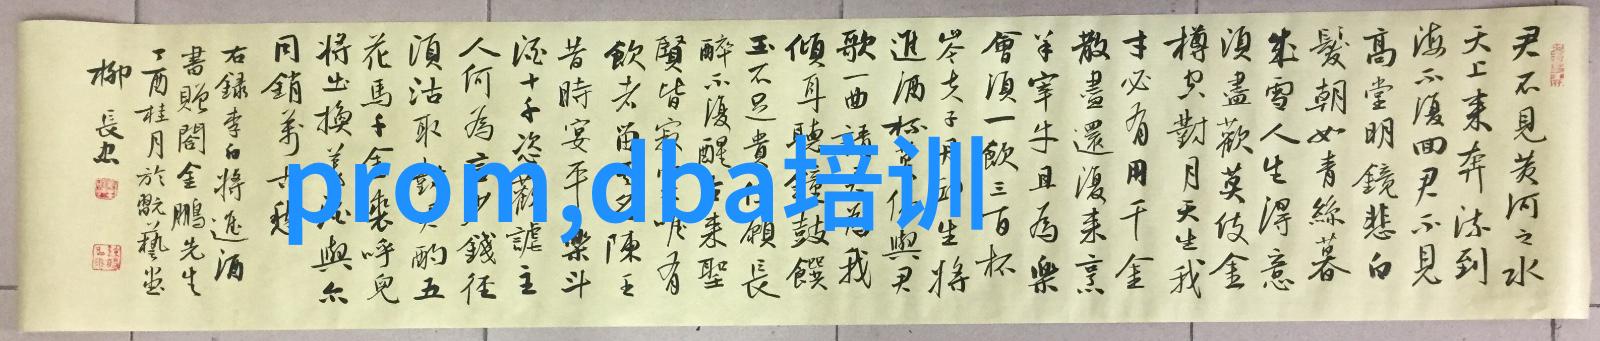 君不見黃河之水
天上來奔流到
海不復回君不見
高堂明鏡悲白
髮朝如青絲暮
成雪人生得意
須盡歡莫使金
樽空對月天生我
才必有用千金
散盡還復來烹
羊宰牛且為樂
會須一飲三百杯
岑夫子丹丘生將
進酒杯莫停與君
歌一曲請君為我
傾耳聽鐘鼓饌
玉不足貴但願長
醉不復醒古來聖
賢皆寂寞唯有
飲者留其名陳王
昔時宴平樂斗
酒十千恣歡謔主
人何為言少錢徑
須沽取對君酌五
花馬千金裘呼兒
將出換美酒與尔
同銷萬古愁
右録李白將進酒
書贈閣金鵬先生
丁酉桂月於翫藝堂
柳長忠
prom,dba培训